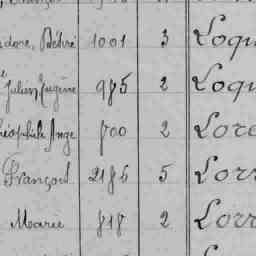 Désiré 1001 3 Loqu
Julien Eugène 985 2 Loqu
Théophile Ange 800 2 Lore
François 2186 5 Lorr
Marie 818 2 Lorr